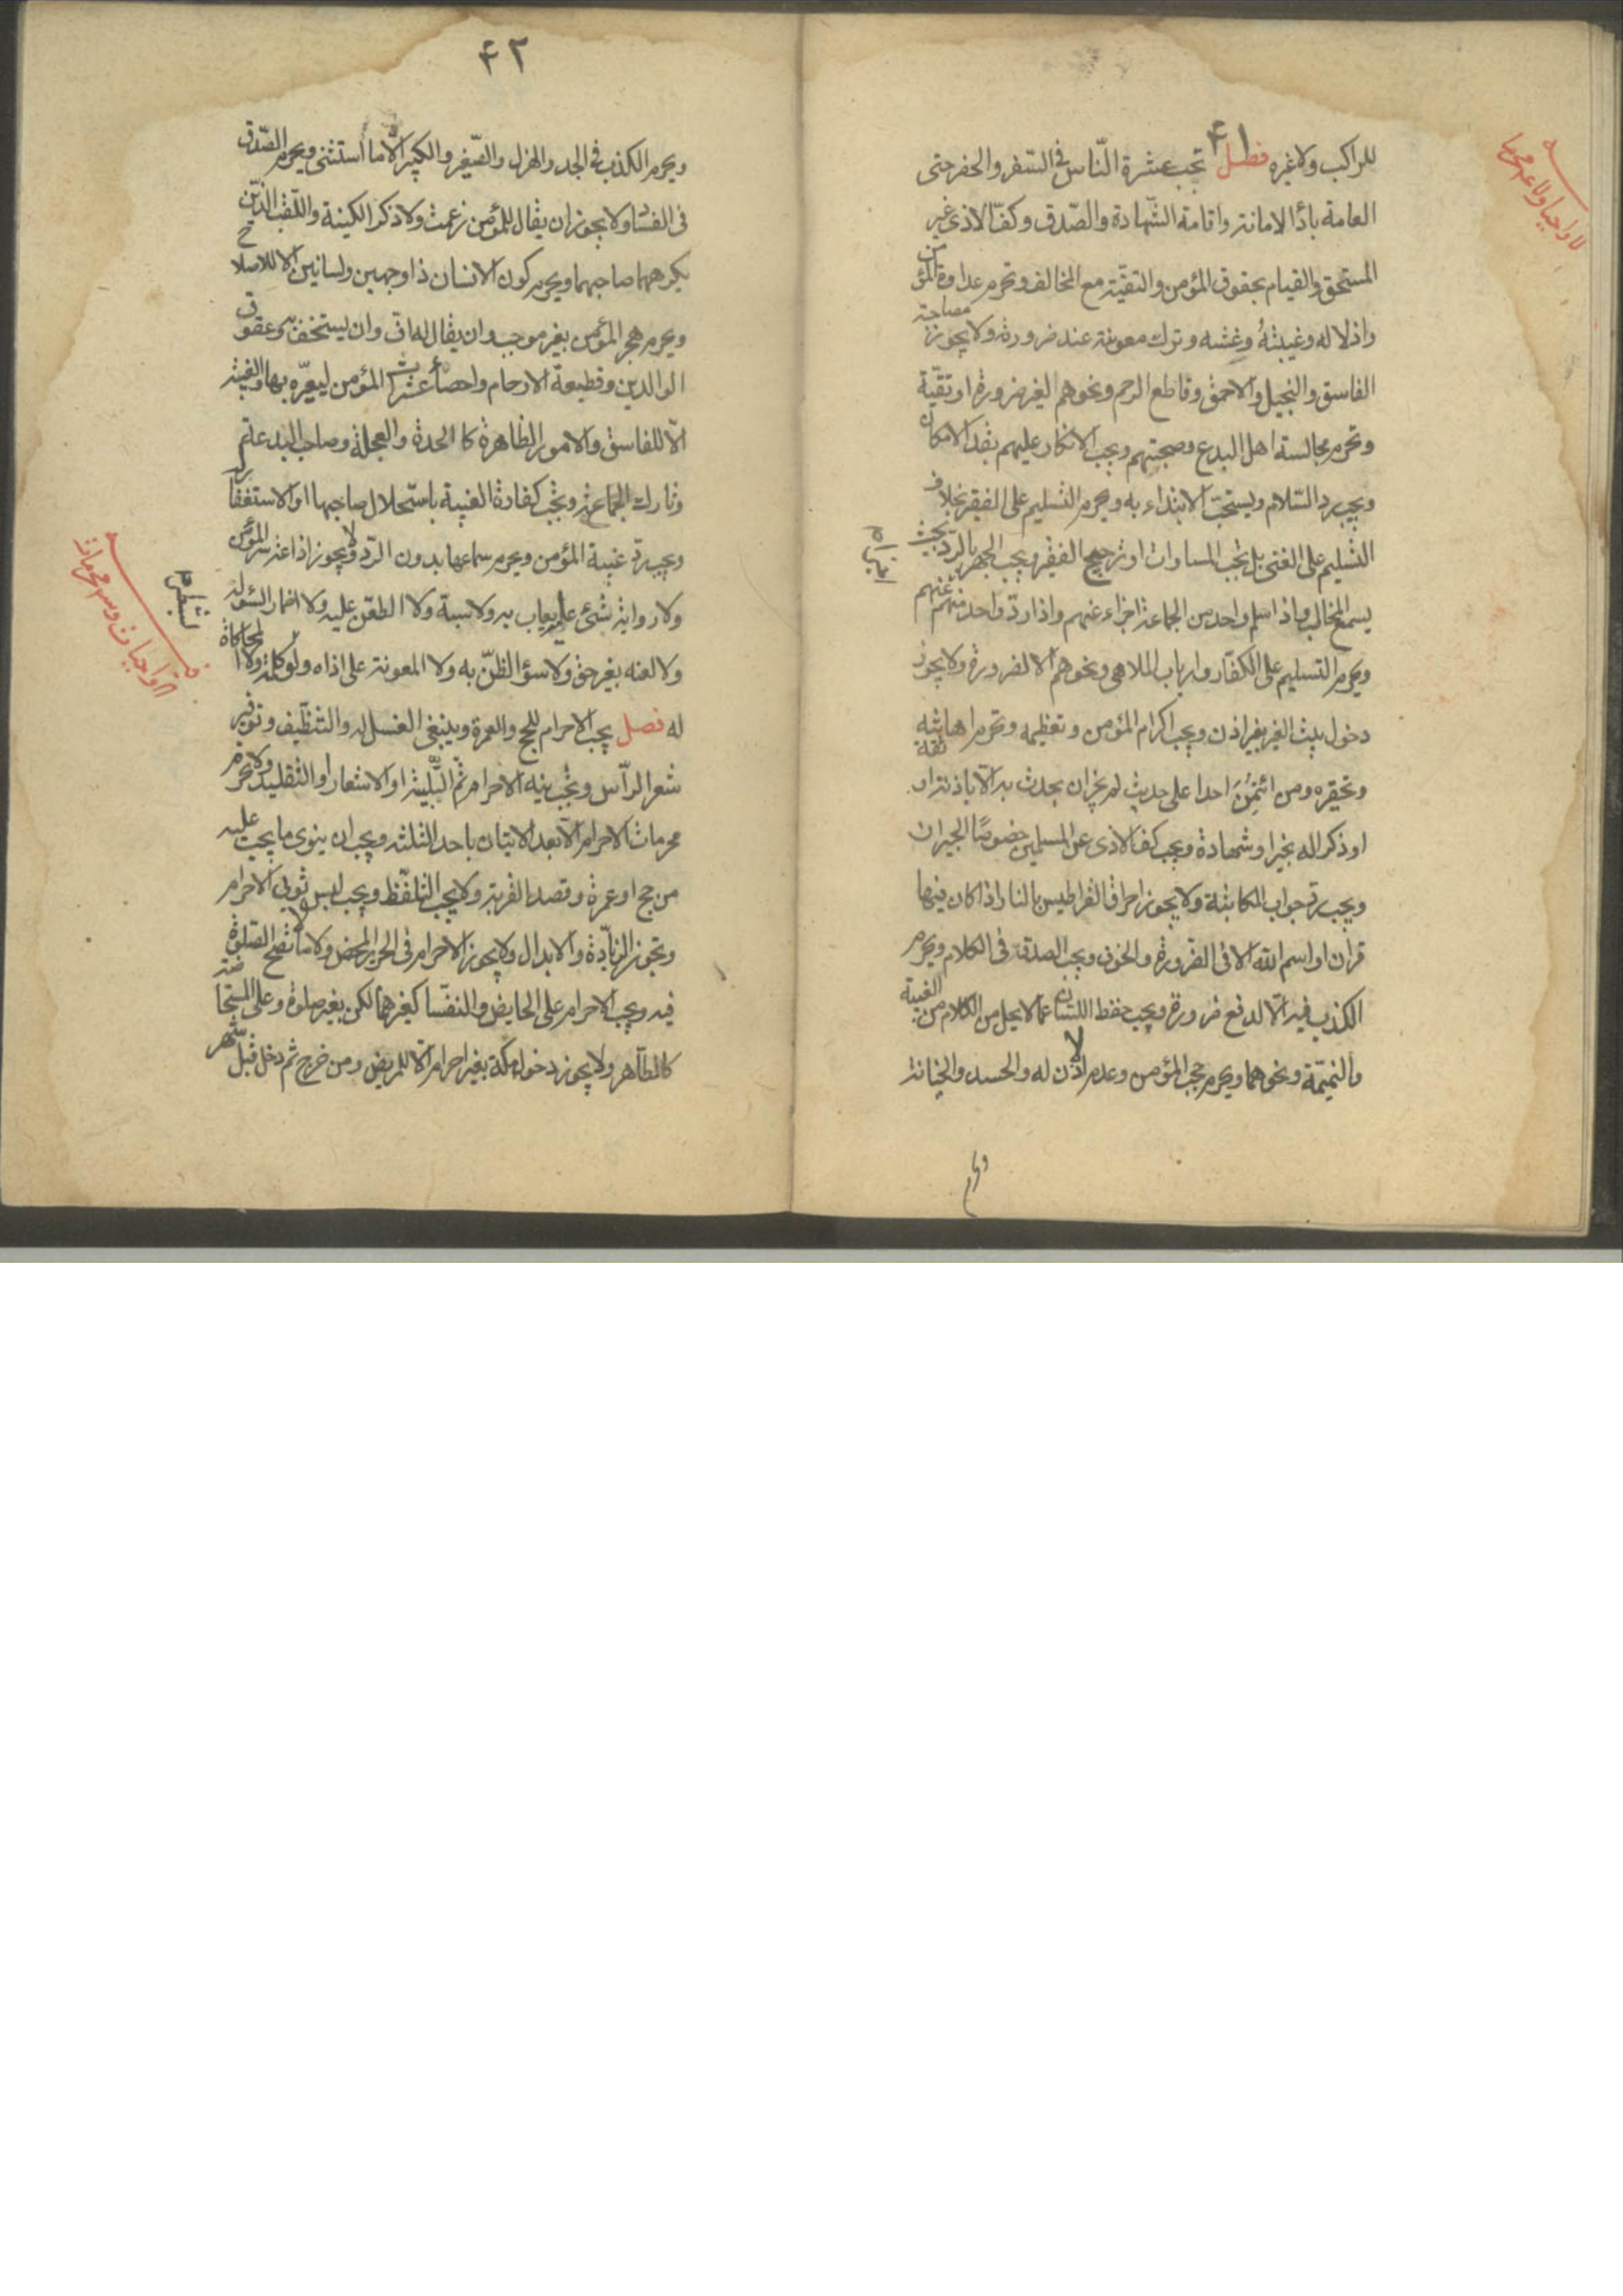 ۴۱
للراكب ولا غيره فصل تجب عشرة النّاس في السّفر والحضر حتى
العامة باداٴ الامانة واقامة الشّهادة والصّدق وكفّ الاذى غير
المستحق والقيام بحقوق المؤمن والتقيّة مع المخالف وتحرم عداوة المؤمن
واذلاله وغيبته وغشه وترك معونته عند ضرورته ولا يجوز مصاحبة
الفاسق والبخيل والاحمق وقاطع الرحم ونحوهم لغير ضرورة او تقيّة
وتحرم مجالسة اهل البدع وصحبتهم ويجب الانكار عليهم بقدر الامكان
ويجب رد السّلام ويستحبّ الابتداء به ويحرم التسليم على الفقير بخلاف
التسليم على الغنى بل تجب المساوات او ترجيح الفقير ويجب الجهر بالرد بحيث
يسمع المخاطب واذا سلم واحد من الجماعة اجزاء عنهم واذا ردّ واحد منهم عنهم
ويحرم التسليم على الكفّار وارباب الملاهى ونحوهم الا لضرورة ولا يجوز
دخول بيت الغير بغير اذن ويجب اكرام المؤمن وتعظيمه وتحرم اهانته
وتحقيره ومن ائتمن احدا على حديث لم يجز ان يحدث به الّا باذنه او ثقة
او ذكر الله بخير او شهادة ويجب كف الاذى عن المسلمين خصوصًا الجيران
ويجب ردّ جواب المكاتبة ولا يجوز احراق القراطيس بالنار اذا كان فيها
قران او اسم الله الا فى الضّرورة والخوف ويجب الصدق فى الكلام ويحرم
الكذب فيه الّا لدفع ضرورة ويجب حفظ اللسان عمّا لا يحل من الكلام من الغيبة
والنميمة ونحوهما ويحرم حجب المؤمن وعدم الاذن له والحسد والخيانة
۴۲
ويحرم الكذب فى الجد والهزل والصّغير والكبير الّا ما استثنى ويحرم الصّدق
فى الفساد ولا يجوز ان يقال للمؤمن زعمت ولا ذكر الكنية واللّقب الذين
يكرههما صاحبهما ويحرم كون الانسان ذا وجهين ولسانين الا للاصلاح
ويحرم هجر المؤمن بغير موجب وان يقال له افّ وان يستخف به وعقوق
الوالدين وقطيعة الارحام واحصاٴ عثرات المؤمن ليعيّره بها والغيبة
الّا للفاسق والامور الظاهرة كالحدة والعجلة وصاحب البدعة
وتارك الجماعة وتجب كفارة الغيبة باستحلال صاحبها او الاستغفار له
ويجب ردّ غيبة المؤمن ويحرم سماعها بدون الردّ ولا يجوز اذاعة سر المؤمن
ولا رواية شئ عليه يعاب به ولا سبه ولا الطعن عليه ولا اضمار السّوء له
ولا لعنه بغير حق ولا سؤ الظنّ به ولا المعونة على اذاه ولو بكلمة ولا المحاكاة
له فصل يجب الاحرام للحج والعمرة وينبغى الغسل له والتنظيف وتوفير
شعر الرّاس وتجب نيه الاحرام ثم التّلبية او الاشعار او التقليد ولا تحرم
محرمات الاحرام الّا بعد الاتيان باحد الثلثة ويجب ان ينوى ما يجب عليه
من حج او عمرة وقصد القربة ولا يجب التلفّظ ويجب لبس ثوبى الاحرام
وتجوز الزيادة والابدال ولا يجوز الاحرام فى الحرير المحض ولا ما لا تصح الصلوة
فيه ويجب الاحرام على الحايض والنفسا كغيرهما لكن بغير صلوة وعلى المستحاضة
كالطاهر ولا يجوز دخول مكة بغير احرام الّا للمريض ومن خرج ثم دخل قبل شهر